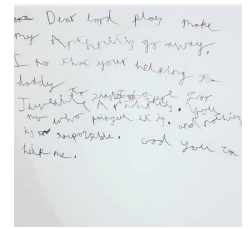 Dear lord pleas make
my Arthritis go away.
I no that your helping the
daddy to find a cure for
Juvenile Arthritis. You
no who painful it is. and nothing
is imposible. God you can
help me.